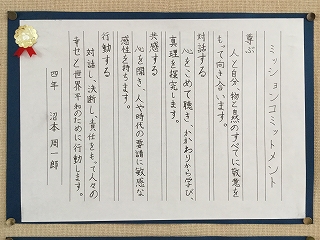 ミッションコミットメント
尊ぶ
人と自分、物と自然のすべてに敬意を
もって向き合います。
対話する
心をこめて聴き、かかわりから学び、
真理を探究します。
共感する
心を開き、人や時代の要請に敏感な
感性を持ちます。
行動する
対話し、決断し、責任をもって人々の
幸せと世界平和のために行動します。
四年 沼本 周一郎